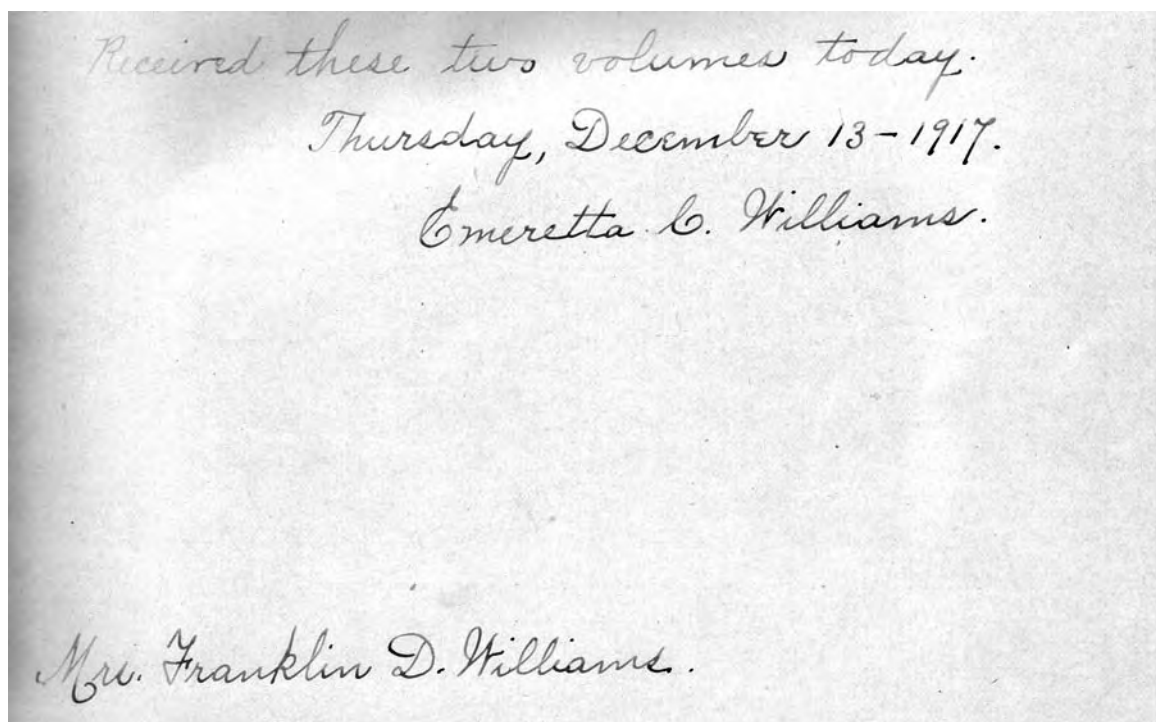 Received these two volumes today.
Thursday, December 13-1917.
Emeretta C. Williams.
Mrs. Franklin D. Williams.